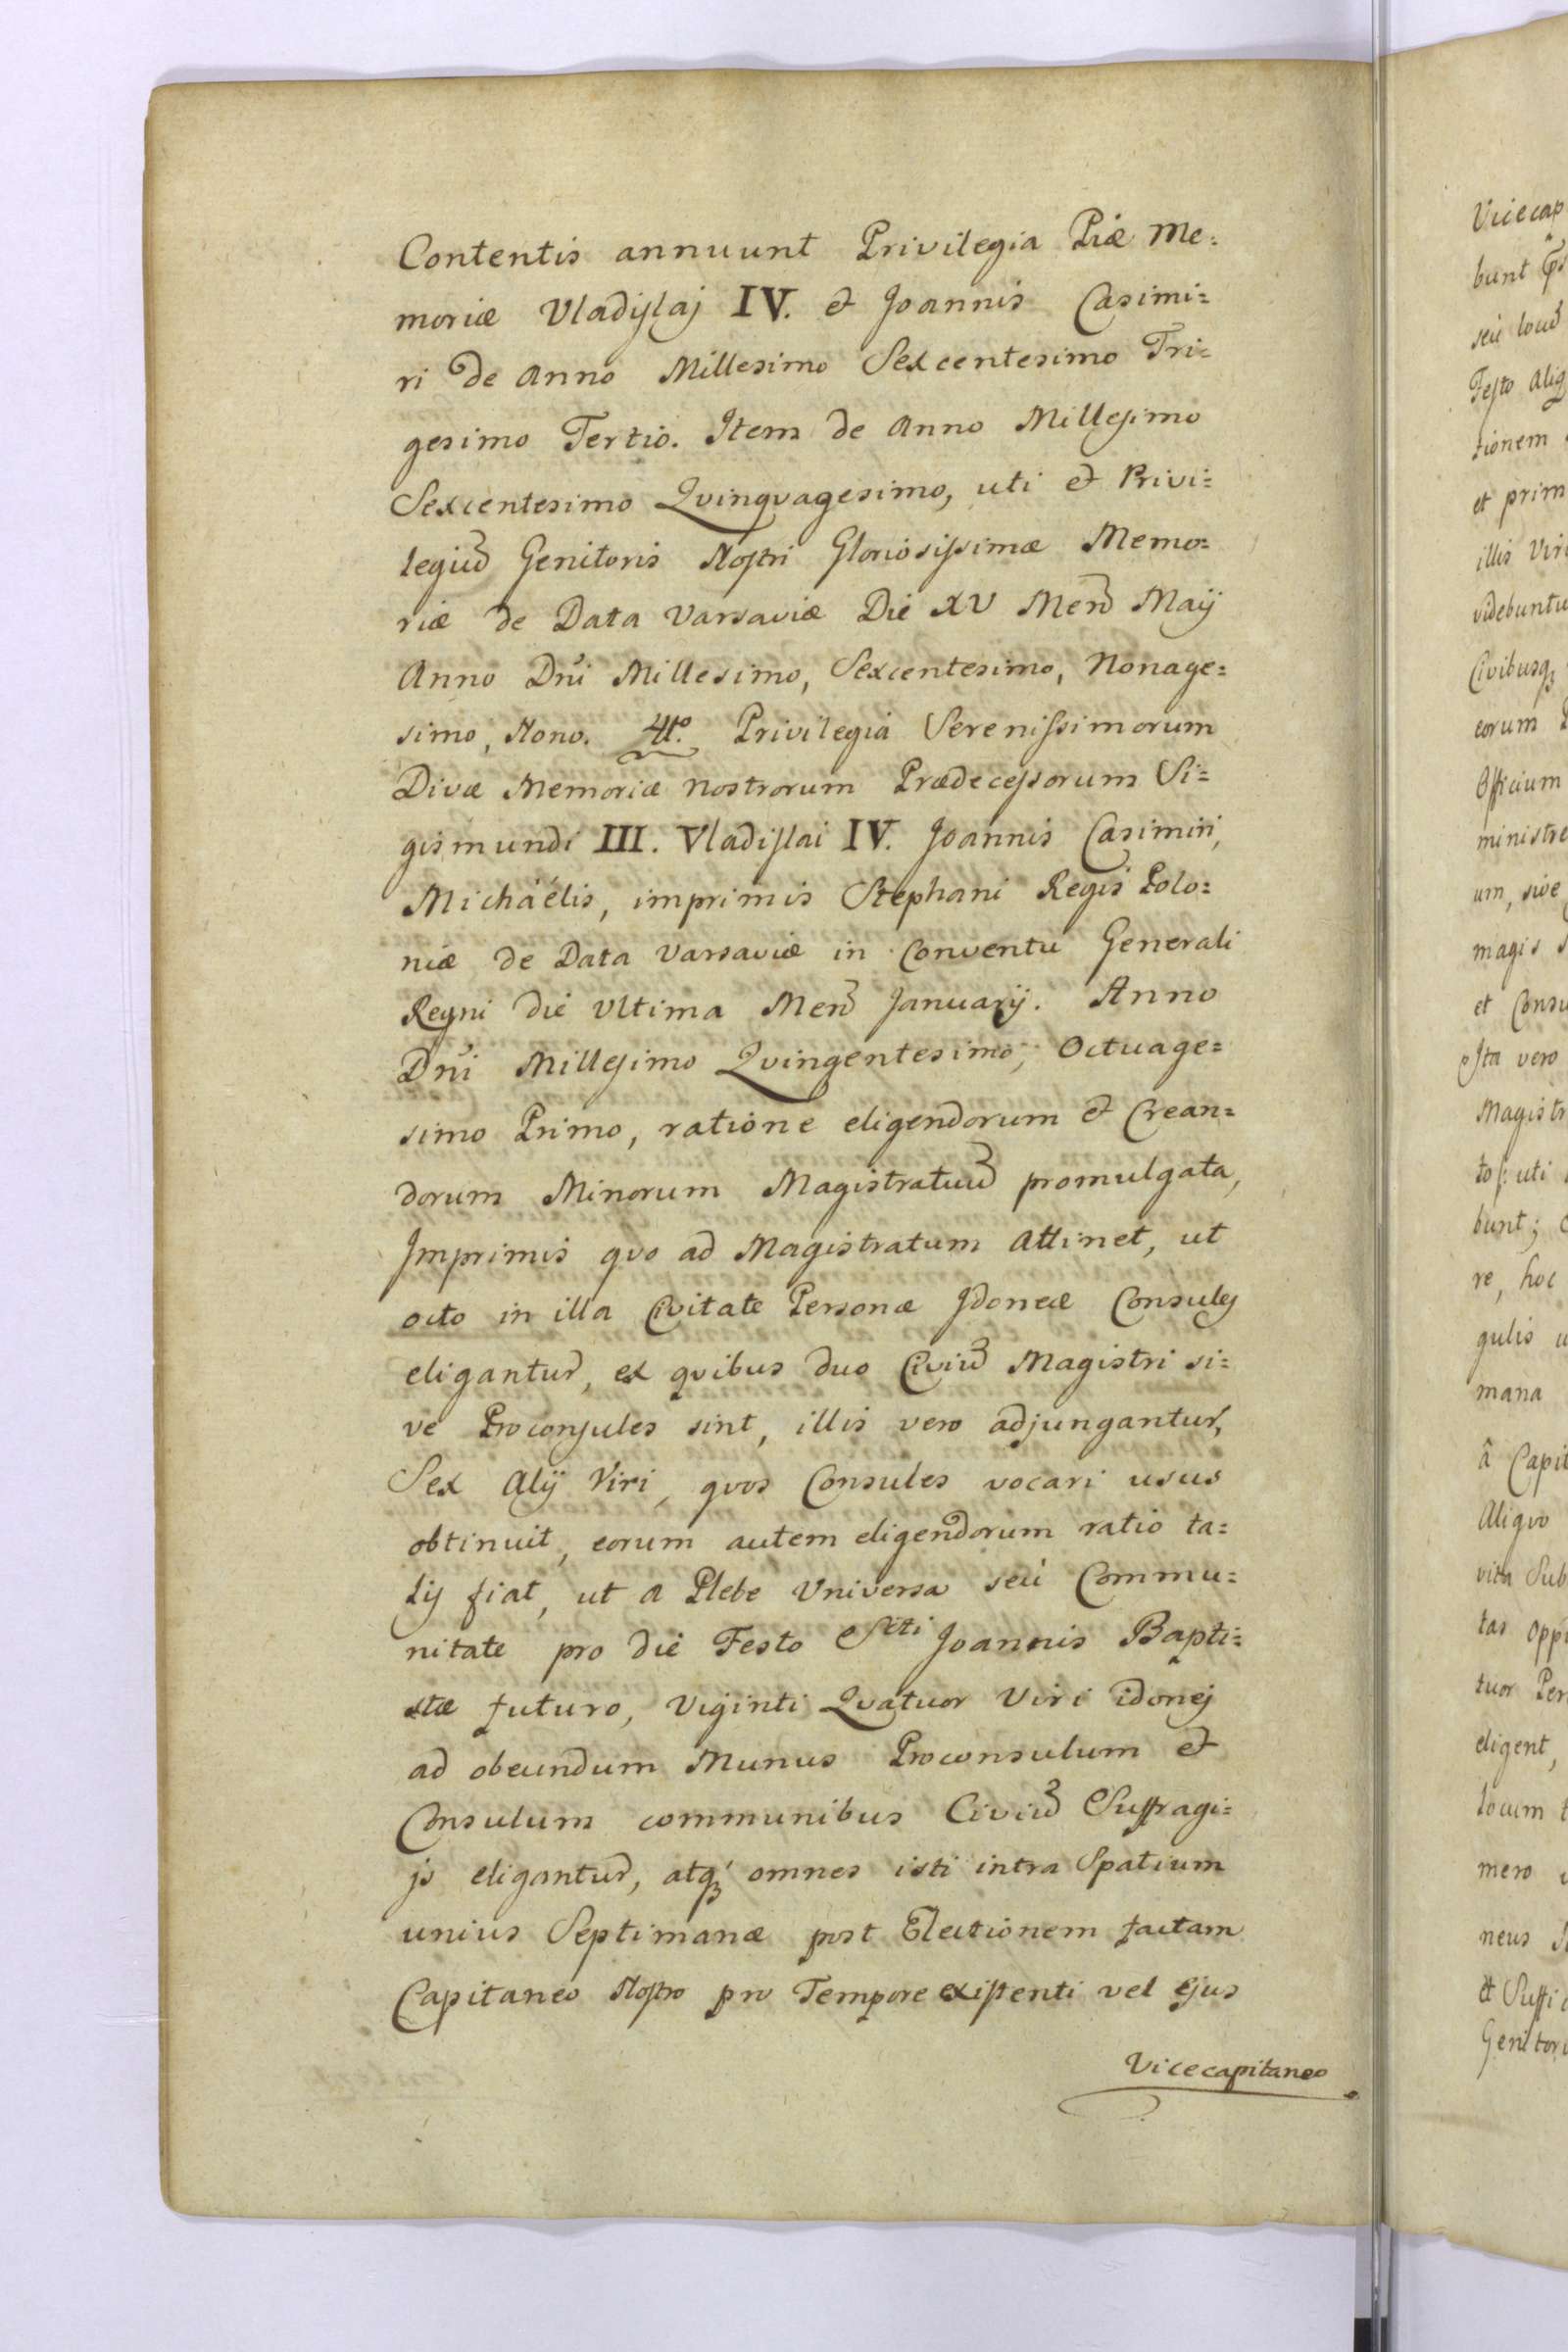 Contentis annuunt Privilegia Piæ Me=
moriæ Vladislaj IV. et Joannis Casimi=
ri de Anno Millesimo Sexcentesimo Tri=
gesimo Tertio. Item de Anno Millesimo
Sexcentesimo Qvinqvagesimo, uti et Privi=
legiū Genitoris Nostri Gloriosissimæ Memo=
riæ de Data Varsaviæ Die XV Mens Maÿ
Anno Dni Millesimo, Sexcentesimo, Nonage=
simo, Nono. 4to. Privilegia Serenissimorum
Divæ Memoriæ nostrorum Prædecessorum Si=
gismundi III. Vladislai IV. Joannis Casimiri,
Michaélis, imprimis Stephani Regis Polo=
niæ de Data Varsaviæ in Conventu Generali
Regni die Ultima Mens Januarÿ. Anno
Dni Millesimo Qvingentesimo, Octuage=
simo Primo, ratione eligendorum et Crean=
dorum Minorum Magistratuū promulgata,
Imprimis qvo ad Magistratum Attinet, ut
octo in illa Civitate Personæ Idoneæ Consules
eligantur, ex qvibus duo Civiū Magistri si=
ve Proconsules sint, illis vero adjungantur,
Sex Alÿ Viri, qvos Consules vocari usus
obtinuit, eorum autem eligendorum ratio ta=
lis fiat, ut a Plebe Universa seu Commu=
nitate pro die Festo Scti Joannis Bapti=
stæ futuro, Viginti Qvatuor Viri idonej
ad obeundum Munus Proconsulum et
Consulum communibus Civiū Suffragi=
js eligantur, atq; omnes isti intra Spatium
unius Septimanæ post Electionem factam
Capitaneo Nostro pro Tempore existenti vel Ejus
Vicecapitaneo
Vicecap
bunt
seu
Festo Aliq
tionem
et prim
illis Viri
videbuntu
Civibusq;
eorum
Officium
ministre
um, sive
magis
et Consu
Ista vero
Magistr
to: uti
bunt;
re, hoc
gulis
mana
â Capit
Aliqvo
vita Sub
tas Oppi
tuor Per
eligent,
locum
mero
neus
et Suffi
Genitori